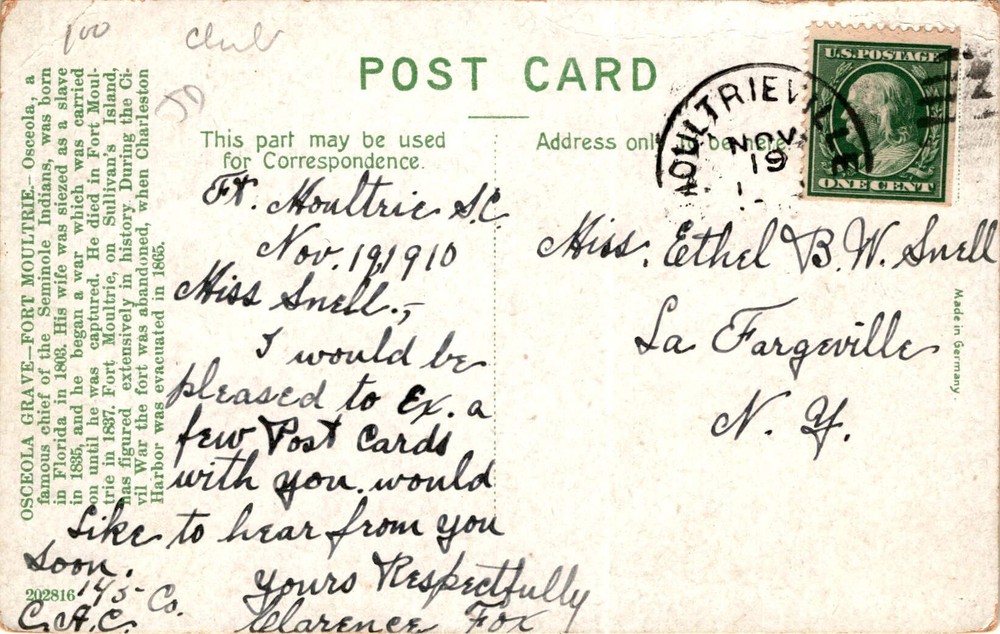 100 club
JD
POST CARD
This part may be used
for Correspondence.
Address only to be here
U.S.POSTAGE
ONE CENT
MOULTRIEVILLE
NOV
19
OSCEOLA GRAVE—FORT MOULTRIE.—Osceola, a
famous chief of the Seminole Indians, was born
in Florida in 1803. His wife was siezed as a slave
in 1835, and he began a war which was carried
on until he was captured. He died in Fort Moul-
trie in 1837. Fort Moultrie, on Sullivan's Island,
has figured extensively in history. During the Ci-
vil War the fort was abandoned, when Charleston
Harbor was evacuated in 1865.
Ft. Moultrie S.C.
Nov. 19, 1910
Miss Snell.,-
I would be
pleased to Ex. a
few Post Cards
with you. would
Like to hear from you
soon.
Yours Respectfully
Clarence Fox
145- Co.
C.A.C.
202816
Miss. Ethel B. W. Snell
La Fargeville
N. Y.
Made in Germany